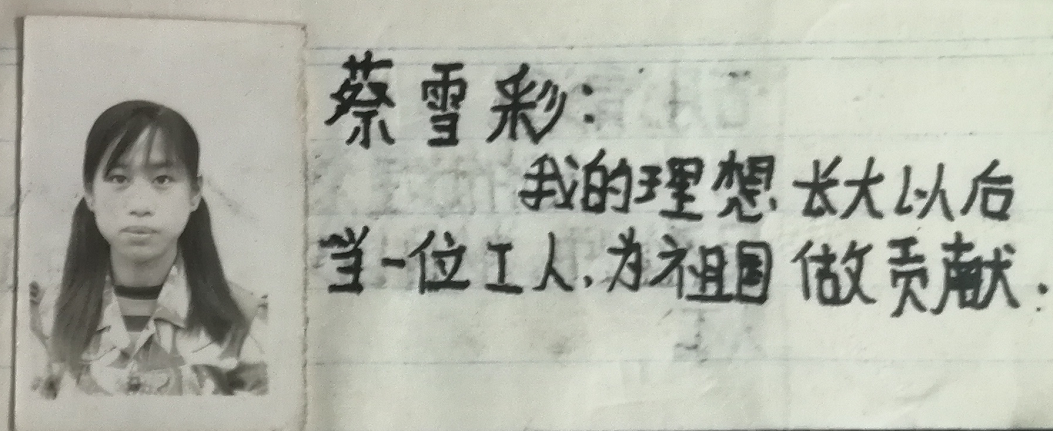 蔡雪彩：
我的理想长大以后
当一位工人，为祖国做贡献.